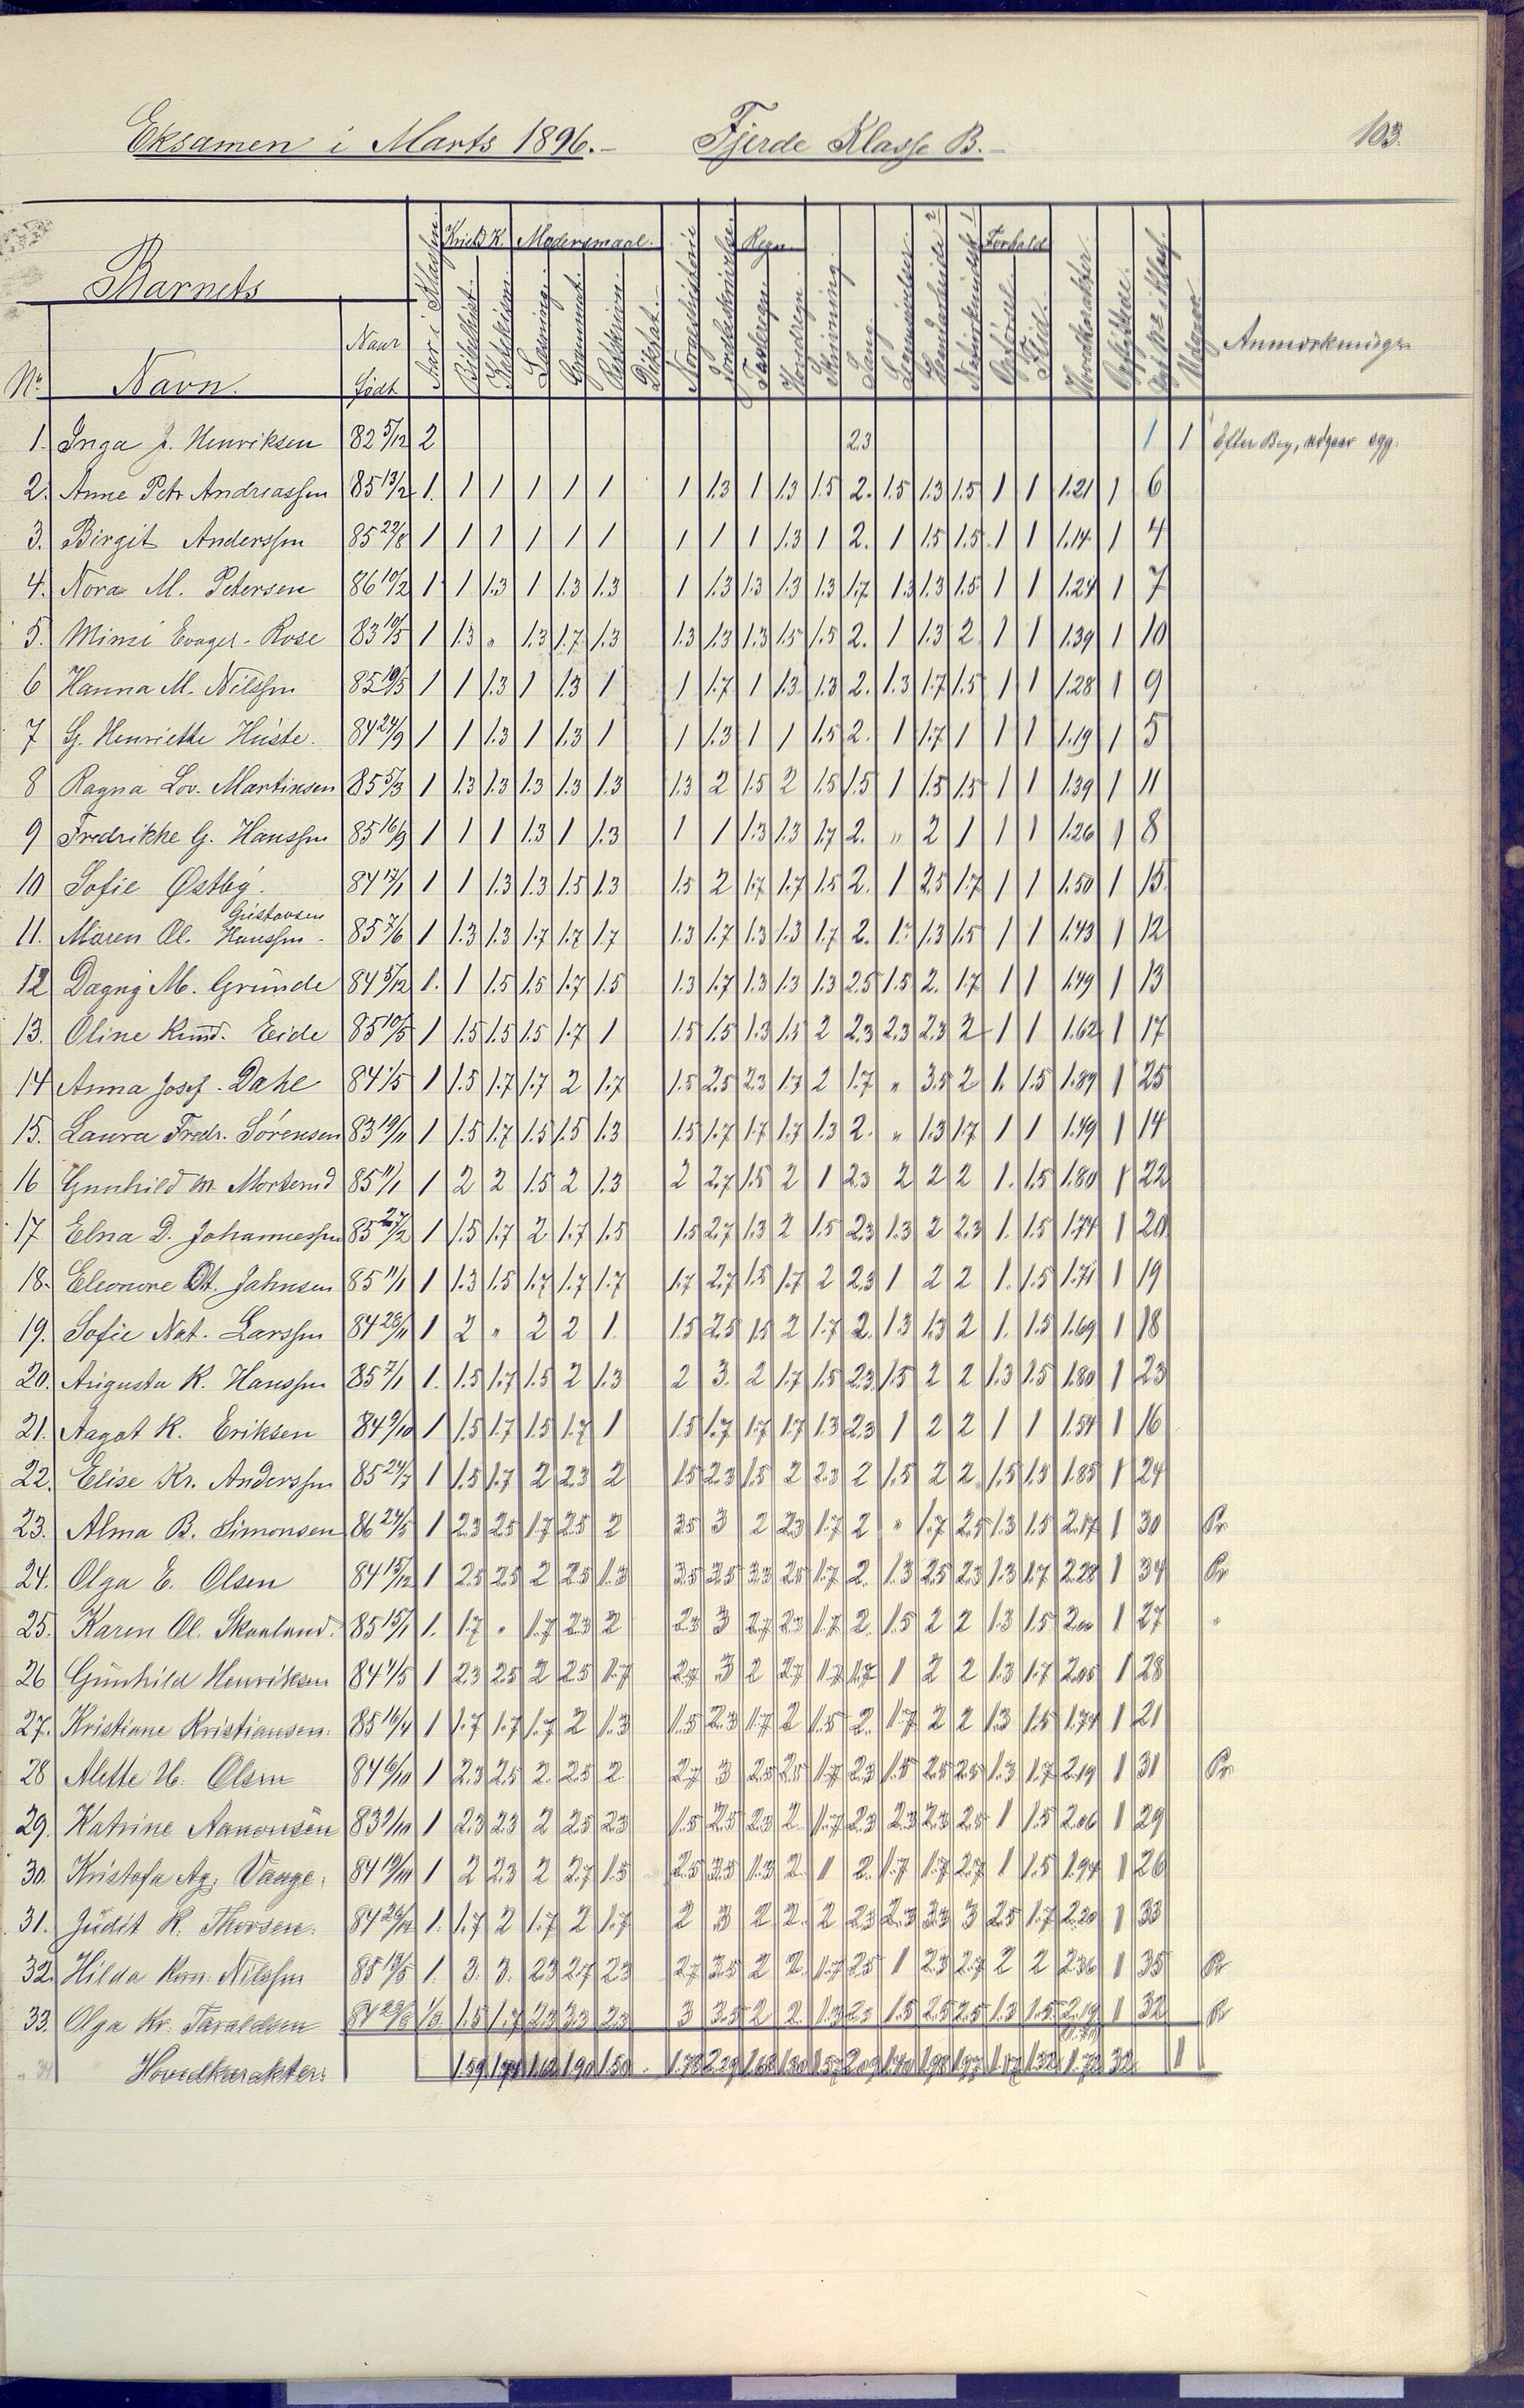 Eksamen i Marts 1896.- Fjerde Klasse B.- 103.
Barnets Aar i Klassen Krist. K. Modersmaal. Regn. Forhold
Nr. Navn. Naar født Bibelhist. Katekism. Læsning. Grammat. Retskrivn. Diktat. Norgeshistorie Jordbeskrivelse Tavleregn. Hovedregn. Skrivning. Sang. Haandarbeide Opførsel. Flid. Hovedkarakter. Opflyttede. Anmærkninger
1. Inga J. Henriksen 82 5/12 2 2.3 1 1 Efter Beg,
2. Anne Petr. Andreassen 85 13/2 1. 1 1 1 1 1 1 1.3 1 1.3 1.5 2. 1.5 1.3 1.5 1 1 1.21 1 6
3. Birgit Anderssen 85 22/8 1 1 1 1 1 1 1 1 1 1.3 1 2. 1 1.5 1.5 1 1 1.14 1 4
4. Nora M. Petersen 86 10/2 1 1 1.3 1 1.3 1.3 1 1.3 1.3 1.3 1.3 1.7 1.3 1.3 1.5 1 1 1.24 1 7
5. Mimi Evagel. Rose 83 10/5 1 1.3 " 1.3 1.7 1.3 1.3 1.3 1.3 1.5 1.5 2. 1 1.3 2 1 1 1.39 1 10
6 Hanna M. Nilssen 85 19/5 1 1 1.3 1 1.3 1 1 1.7 1 1.3 1.3 2. 1.3 1.7 1.5 1 1 1.28 1 9
7 G. Henriette Huste. 84 24/9 1 1 1.3 1 1.3 1 1 1.3 1 1 1.5 2. 1 1.7 1 1 1 1.19 1 5
8 Ragna Lov. Martinsen 85 5/3 1 1.3 1.3 1.3 1.3 1.3 1.3 2 1.5 2 1.5 1.5 1 1.5 1.5 1 1 1.39 1 11
9 Fredrikke G. Hanssen 85 16/9 1 1 1 1.3 1 1.3 1 1 1.3 1.3 1.7 2. " 2 1 1 1 1.26 1 8
10 Sofie Østby. 84 17/1 1 1 1.3 1.3 1.5 1.3 1.5 2 1.7 1.7 1.5 2. 1 2.5 1.7 1 1 1.50 1 15.
Gustavsen
11. Maren Ol. Hanssen. 85 7/6 1 1.3 1.3 1.7 1.7 1.7 1.3 1.7 1.3 1.3 1.7 2. 1. 1.3 1.5 1 1 1.43 1 12
12 Dagny M. Grunde 84 5/12 1. 1 1.5 1.5 1.7 1.5 1.3 1.7 1.3 1.3 1.3 2.5 1.5 2. 1.7 1 1 1.49 1 13
13. Oline Knud. Eide 85 10/5 1 1.5 1.5 1.5 1.7 1 1.5 1.5 1.3 1.5 2 2.3 2.3 2.3 2 1 1 1.62 1 17
14 Anna Josef. Dahl 84 1/5 1 1.5 1.7 1.7 2 1.7 1.5 2.5 2.3 1.7 2 1.7 " 3.5 2 1. 1.5 1.89 1 25
15. Laura Fredr. Sörensen 83 19/11 1 1.5 1.7 1.5 1.5 1.3 1.5 1.7 1.7 1.7 1.3 2. " 1.3 1.7 1 1 1.49 1 14
16 Gunhild M. Morterud 85 11/1 1 2 2 1.5 2 1.3 2 2.7 1.5 2 1 2.3 2 2 2 1. 1.5 1.80 1 22
17 Elna D. Johannessen 85 27/2 1 1.5 1.7 2 1.7 1.5 1.5 2.7 1.3 2 1.5 2.3 1.3 2 2.3 1. 1.5 1.74 1 20
18. Eleonore Ot. Jahnsen 85 11/1 1 1.3 1.5 1.7 1.7 1.7 1.7 2.7 1.5 1.7 2 2.3 1 2 2 1. 1.5 1.71 1 19
19. Sofie Nat. Larssen 84 26/11 1 2 " 2 2 1. 1.5 2.5 1.5 2 1.7 2. 1.3 1.3 2 1. 1.5 1.69 1 18
20. Augusta K. Hanssen 85 7/1 1. 1.5 1.7 1.5 2 1.3 2 3. 2 1.7 1.5 2.3 1.5 2 2 1.3 1.5 1.80 1 23
21. Aagot K. Eriksen 84 9/10 1 1.5 1.7 1.5 1.7 1 1.5 1.7 1.7 1.7 1.3 2.3 1 2 2 1 1 1.54 1 16
22. Elise Kr. Anderssen 85 24/7 1 1.5 1.7 2 2.3 2 1.5 2.3 1.5 2 2.3 2 1.5 2 2 1.5 1.5 1.85 1 24
23. Alma B. Simonsen 86 24/5 1 2.3 2.5 1.7 2.5 2 3.5 3 2 2.3 1.7 2 " 1.7 2.5 1.3 1.5 2.17 1 30 Pr
24. Olga E. Olsen 84 15/12 1 2.5 2.5 2 2.5 1.3 3.5 3.5 3.3 2.5 1.7 2. 1.3 2.5 2.3 1.3 1.7 2.28 1 34 Pr
25. Karen Ol. Skaaland. 85 15/1 1. 1.7 " 1.7 2.3 2 2.3 3 2.7 2.3 1.7 2. 1.5 2 2 1.3 1.5 2.00 1 27 "
26 Gunhild Henriksen 84 4/5 1 2.3 2.5 2 2.5 1.7 2.7 3 2 2.7 1.7 1.7 1 2 2 1.3 1.7 2.05 1 28
27. Kristiane Kristiansen. 85 16/4 1 1.7 1.7 1.7 2 1.3 1.5 2.3 1.7 2 1.5 2. 1.7 2 2 1.3 1.5 1.74 1 21
28 Alette H. Olsen 84 6/10 1 2.3 2.5 2. 2.5 2. 2.7 3 2.5 2.5 1.7 2.3 1.5 2.5 2.5 1.3 1.7 2.19 1 31 Pr
29. Katrine Aanonsen 83 9/10 1 2.3 2.3 2 2.5 2.3 1.5 2.5 2.3 2. 1.7 2.3 2.3 2.3 2.5 1 1.5 2.06 1 29
30. Kristofa Ag. Vange. 84 19/10 1 2 2.3 2 2.7 1.5 2.5 3.5 1.3 2. 1 2. 1.7 1.7 2.7 1 1.5 1.94 1 26
31. Judit K. Thorsen. 84 26/12 1. 1.7 2 1.7 2 1.7 2 3 2 2. 2 2.3 2.3 3.3 3 2.5 1.7 2.20 1 33
32. Hilda Korn. Nilssen 85 19/5 1. 3. 3. 2.3 2.7 2.3 2.7 3.5 2 2. 1.7 2.5 1 2.3 2.7 2 2 2.36 1 35 Pr
33. Olga Kr. Taraldsen 84 29/6 1/3 1.5 1.7 2.3 3.3 2.3 3 3.5 2 2. 1.3 2.3 1.5 2.5 2.5 1.3 1.5 2.19 1 32 Pr
Hovedkarakter: 1.59 1.62 1.90 1.50 1.78 2.29 1.68 1.80 1.57 2.09 1.40 1.98 1.97 1.17 1.32 1.72 32 1